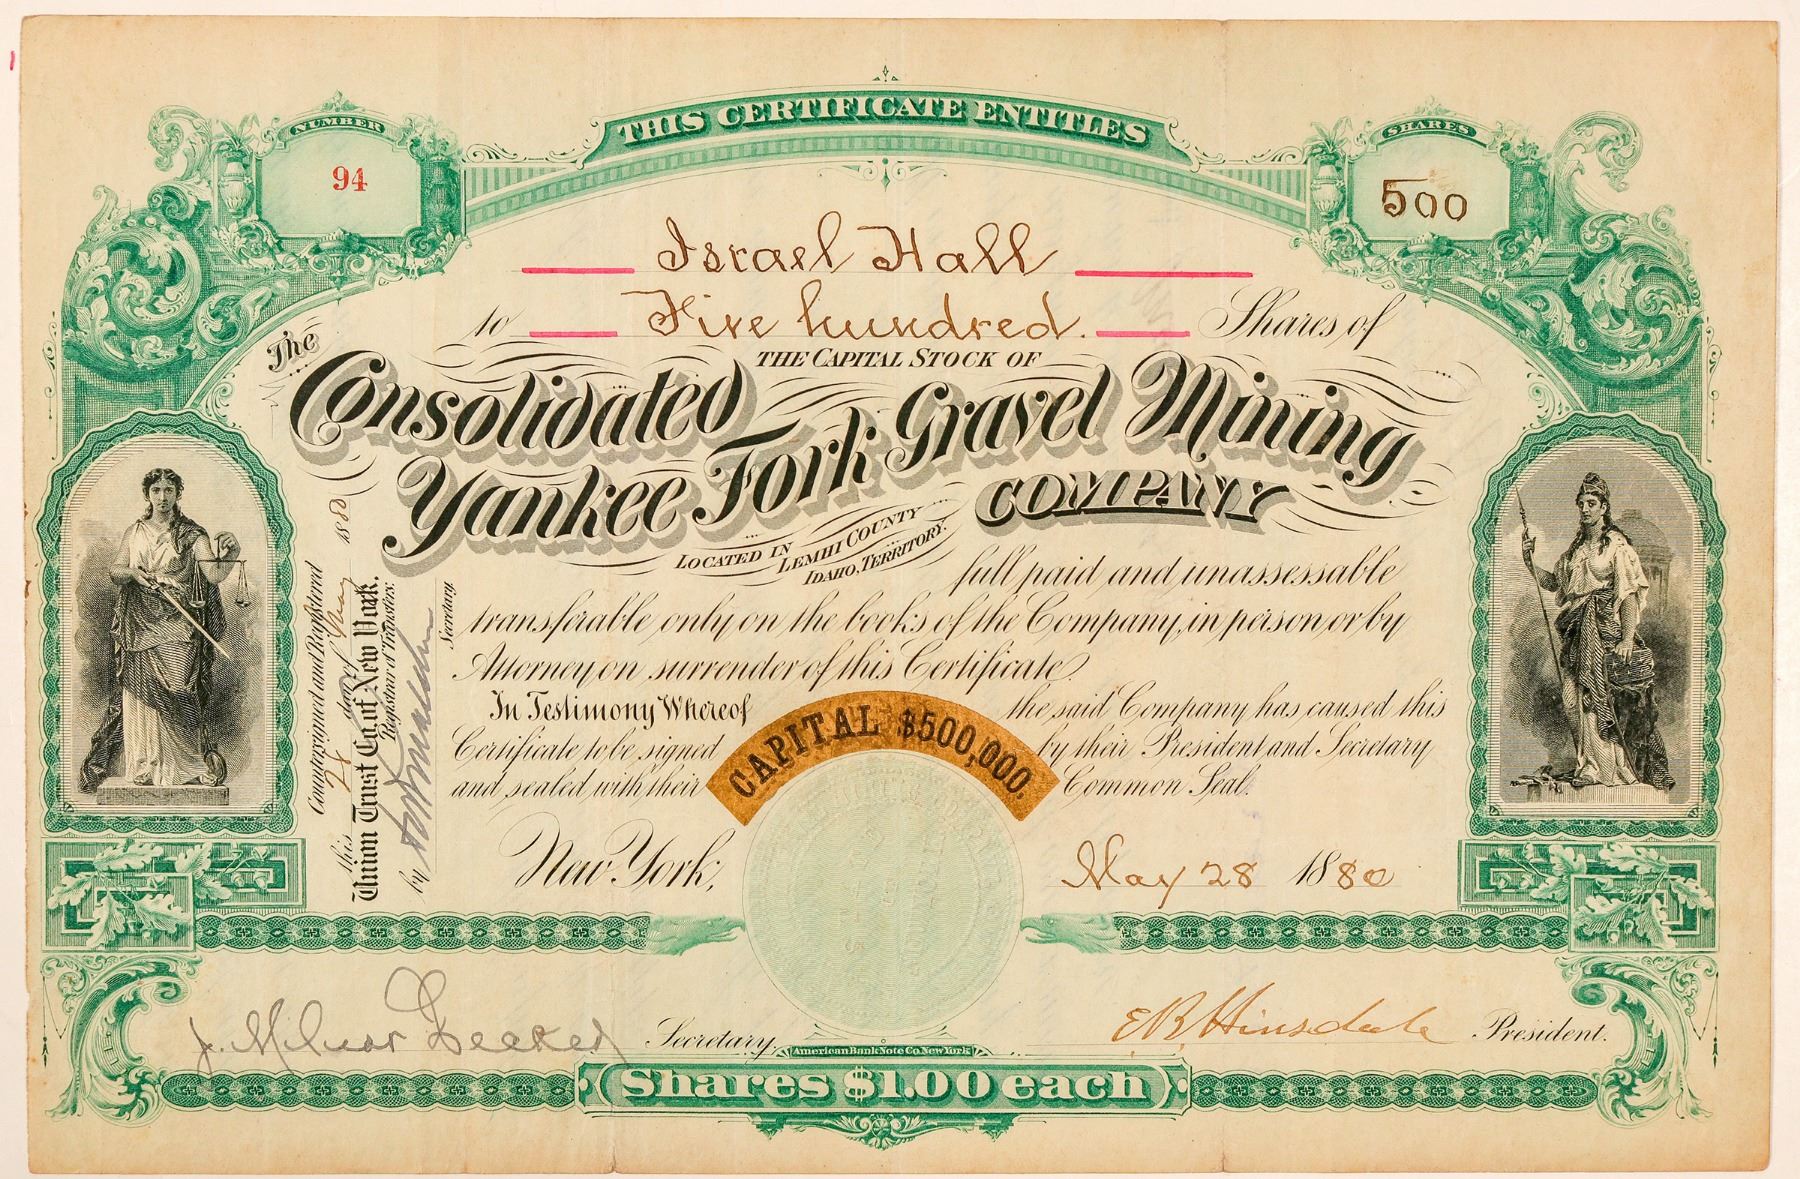 THIS CERTIFICATE ENTITLES
NUMBER
94
SHARES
500
Israel Hall
to Five hundred. Shares of
THE CAPITAL STOCK OF
The Consolidated Yankee Fork Gravel Mining COMPANY
LOCATED IN LEMHI COUNTY IDAHO, TERRITORY.
full paid and unassessable
transferable only on the books of the Company, in person or by
Attorney on surrender of this Certificate.
In Testimony Whereof the said Company has caused this
Certificate to be signed by their President and Secretary
and sealed with their Common Seal.
CAPITAL $500,000.
New York, May 28 1880
Countersigned and Registered
this 28 day of May 1880
Union Trust Co. of New York.
Registrar of Transfers.
by Secretary
J. Milnor Secretary.
E B Hinsdale President.
American Bank Note Co. New York
Shares $1.00 each